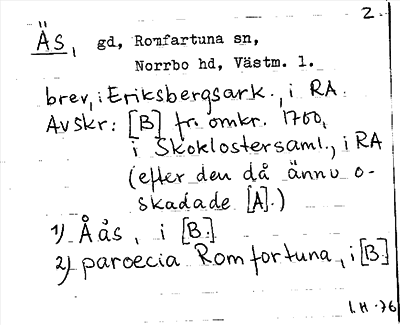 2.
ÄS, gd, Romfartuna sn,
Norrbo hd, Västm. l.
brev, i Eriksbergsark., i RA.
Avskr: [B] fr. omkr. 1700,
i Skoklostersaml., i RA
(efter den då ännu o-
skadade [A].)
1) Åås, i [B.]
2) paroecia Romfortuna, i [B]
I.H -76